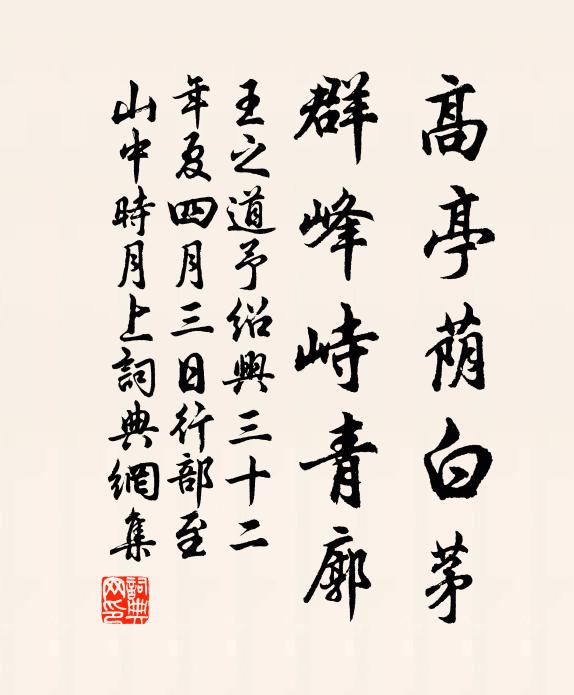 高亭荫白茅
群峰峙青廓
王之道予绍興三十二
年夏四月三日行部至
山中時月上詞典網集
詞典网印